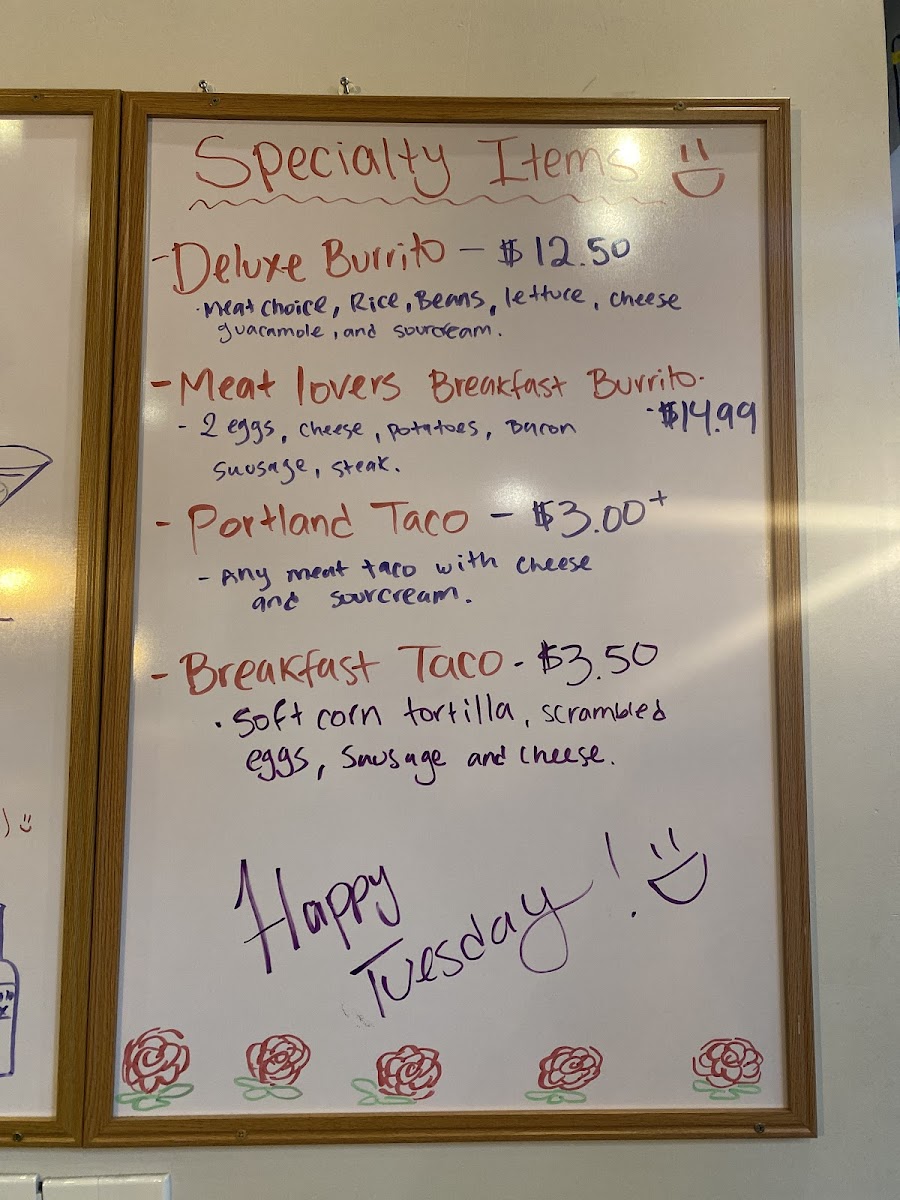 Specialty Items
- Deluxe Burrito - $12.50
· Meat choice, Rice, Beans, lettuce, cheese
guacamole, and sourcream.
- Meat lovers Breakfast Burrito.
- 2 eggs, cheese, potatoes, Bacon - $14.99
sausage, steak.
- Portland Taco - $3.00+
- Any meat taco with cheese
and sourcream.
- Breakfast Taco - $3.50
· Soft corn tortilla, scrambled
eggs, sausage and cheese.
Happy
Tuesday!